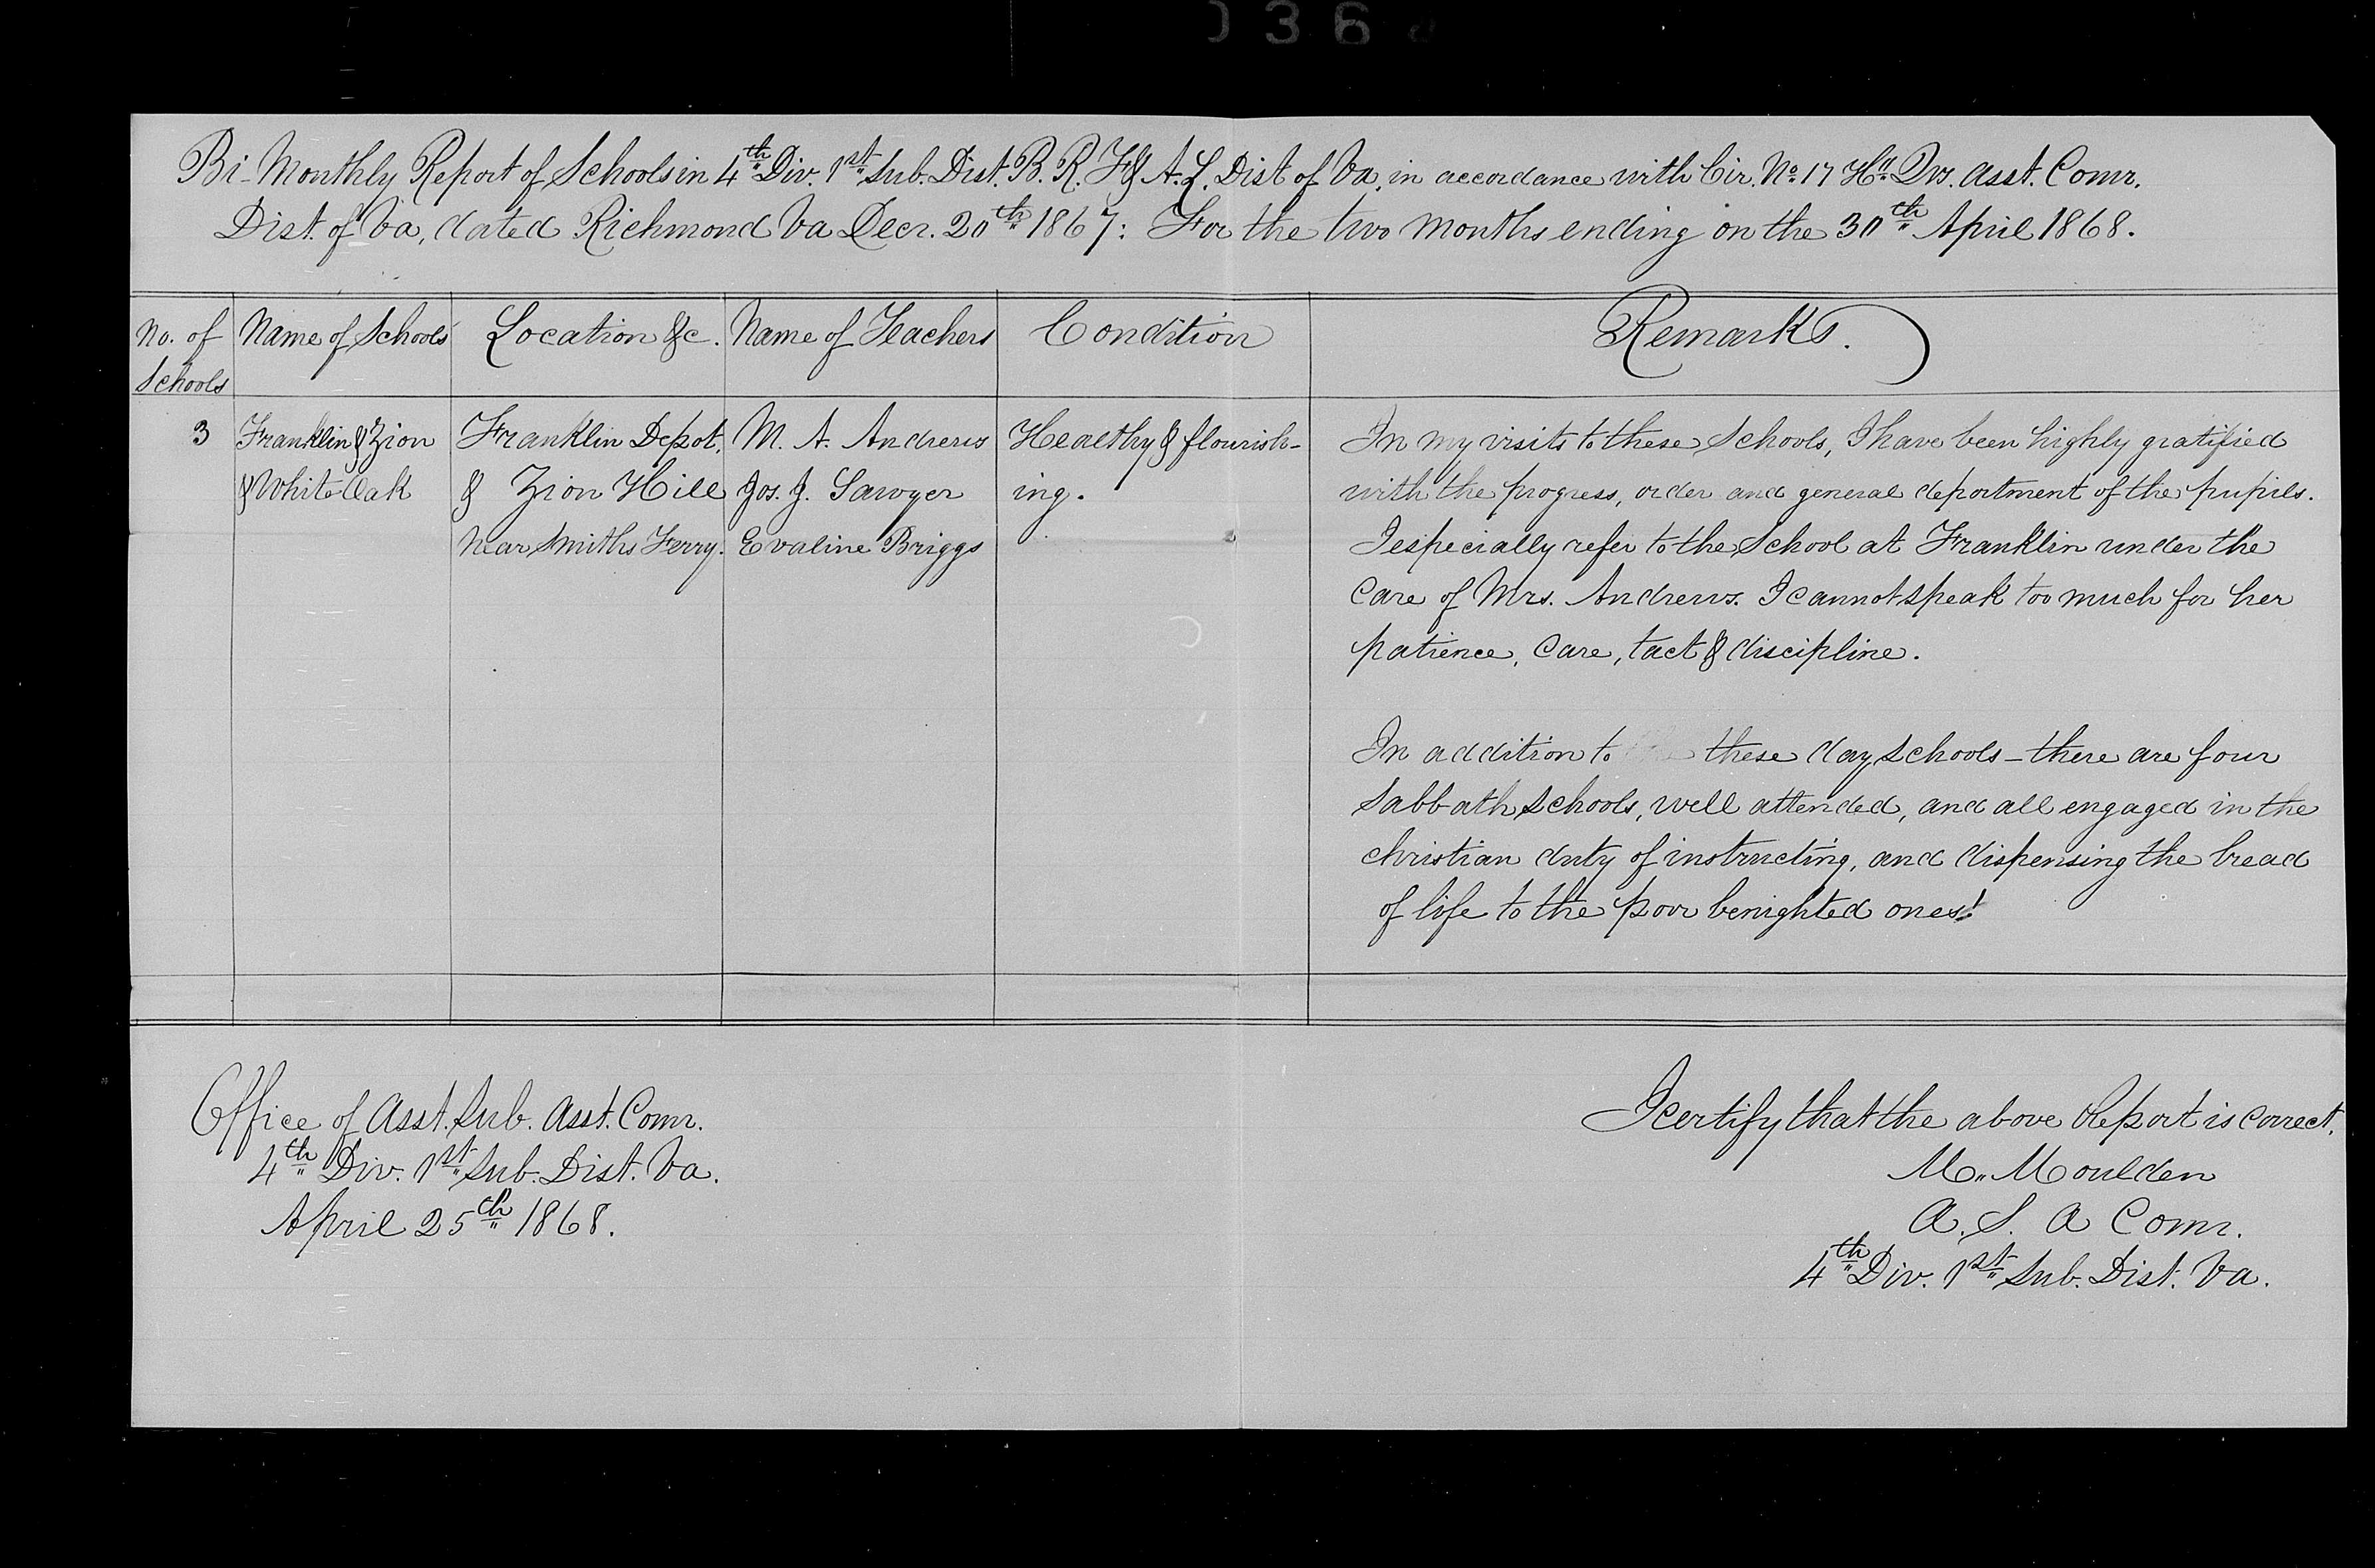 036
Bi-Monthly Report of Schools in 4th Div. 1st Sub. Dist. B. R. F & A. L. Dist of Va, in accordance with Cir. No. 17 Hd. Qrs. Asst. Comr.
Dist. of Va, dated Richmond Va Decr. 20th 1867: For the two months ending on the 30th April 1868.
No. of Schools
Name of Schools
Location &c.
Name of Teachers
Condition
Remarks.
3
Franklin & Zion
& White Oak
Franklin Depot,
& Zion Hill
near Smiths Ferry.
M. A. Andrews
Jos. J. Sawyer
Evaline Briggs
Healthy & flourish-
ing.
In my visits to these Schools, I have been highly gratified
with the progress, order and general deportment of the pupils.
I especially refer to the School at Franklin under the
care of Mrs. Andrews. I cannot speak too much for her
patience, care, tact & discipline.
In addition to these day schools - there are four
Sabbath Schools, well attended, and all engaged in the
christian duty of instructing, and dispensing the bread
of life to the poor benighted ones!
Office of Asst. Sub. Asst. Comr.
4th Div. 1st Sub. Dist. Va.
April 25th 1868.
I certify that the above Report is correct.
M. Moulden
A. S. A Comr.
4th Div. 1st Sub. Dist. Va.